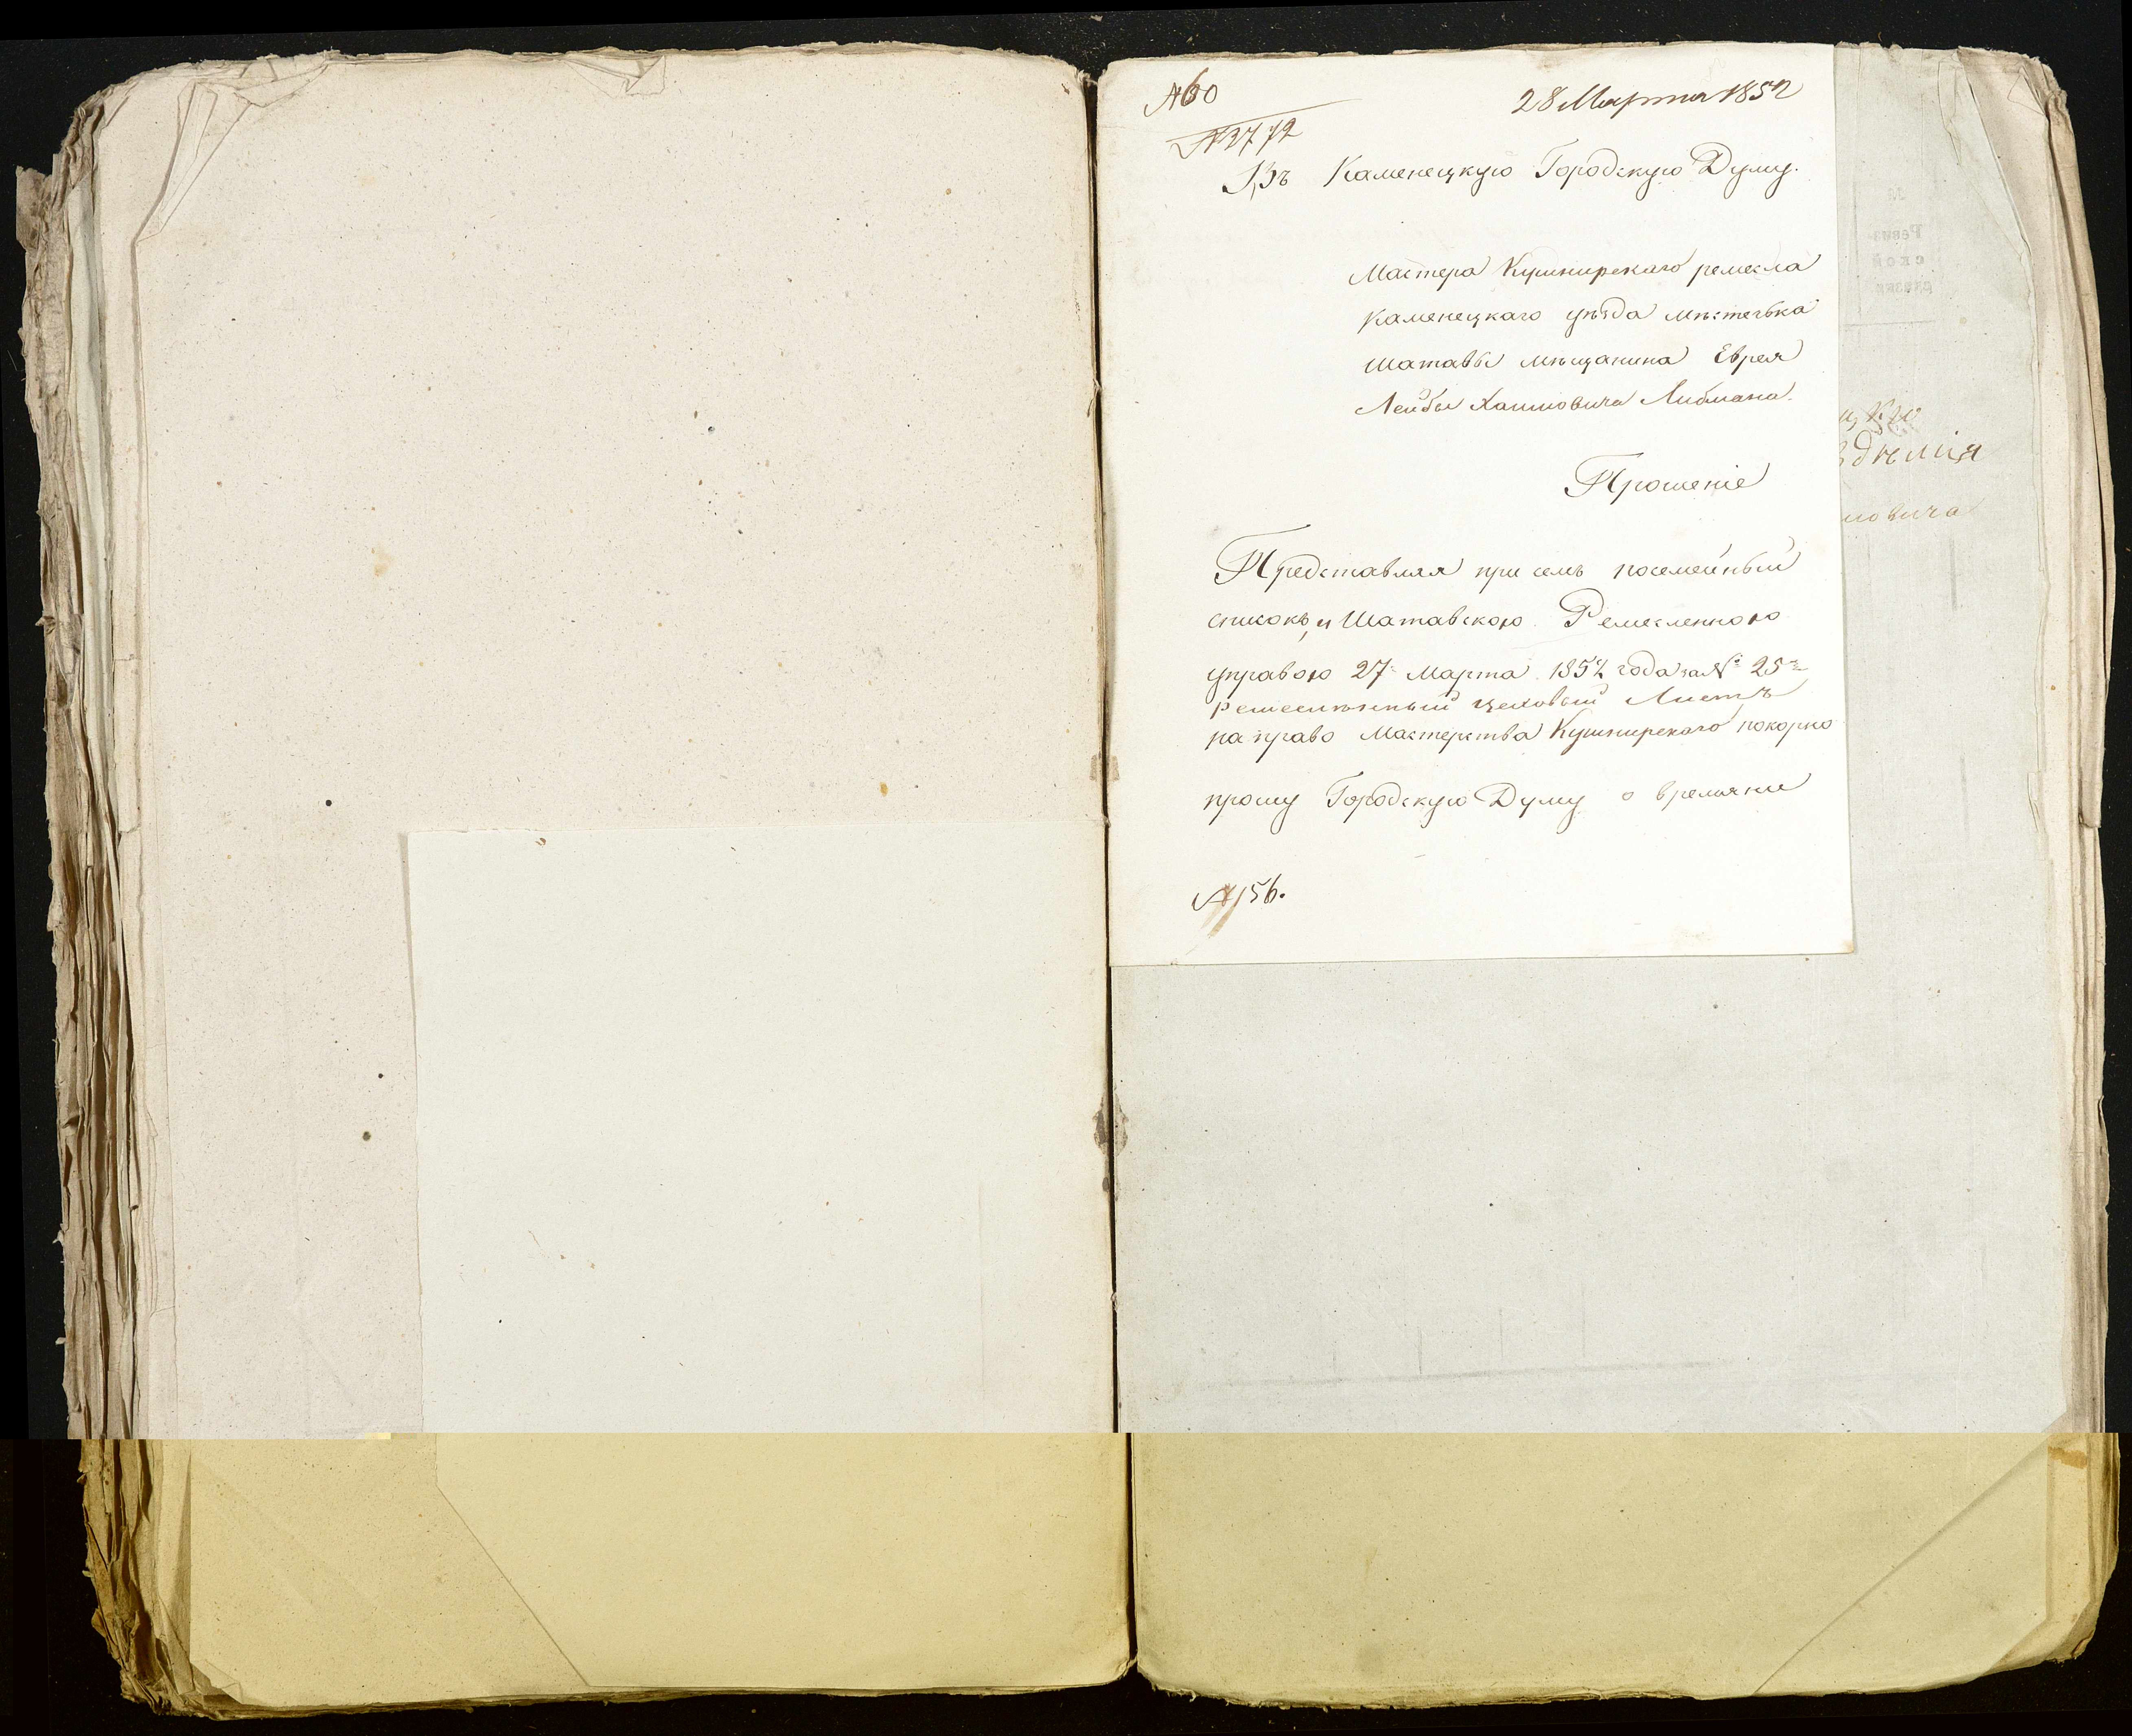 № 60
28 Марта 1852
№ 3772
Въ Каменецкую Городскую Думу.
Мастера Кушнирскаго ремесла
Каменецкаго уѣзда мѣстечька
Шатавы мѣщанина Еврея
Лейбы Хаимовича Либмана.
Прошеніе
Представляя при семъ посемейный
списокъ, и Шатавскою Ремесленною
управою 27 Марта 1852 года за № 25
Ремеслѣнный цеховый Листъ
на право Мастерства Кушнирскаго покорно
прошу Городскую Думу о
№ 156.